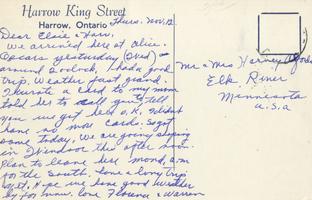 HARROW KING STREET
HARROW, ONTARIO
Thurs. Nov. 12
Dear Elsie & Harv,
We arrived here at Alice
yesterday (Wed)
around 2 o'clock, had a good
trip. Weather just grand.
I wrote a card to my mom
told her to call you & tell
you we got here O.K. I didn't
have no more cards. So got
some today. We are going shopping
in Windsor this after noon
Plan to leave here mond. a.m
for the South. Some & long trip
yet. Hope we have good weather
by for now. Love Florence & Warren
Mr & Mrs Harvey
Elk River
Minnesota
U.S.A